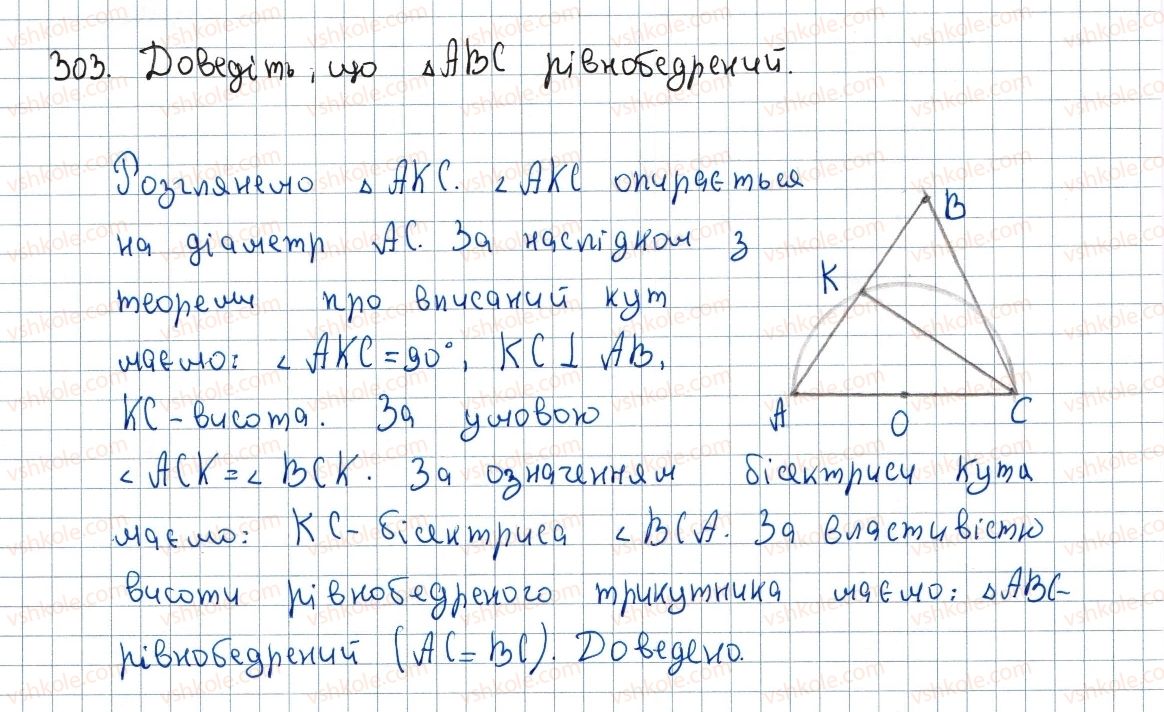 303. Доведіть, що △ABC рівнобедрений.
Розглянемо △AKC. ∠AKC опирається
на діаметр AC. За наслідком з
теореми про вписаний кут
маємо: ∠AKC = 90°, KC ⊥ AB,
KC - висота. За умовою
∠ACK = ∠BCK. За означенням бісектриси кута
маємо: KC - бісектриса ∠BCA. За властивістю
висоти рівнобедреного трикутника маємо: △ABC -
рівнобедрений (AC = BC). Доведено.
B
K
A
O
C
vshkole.com